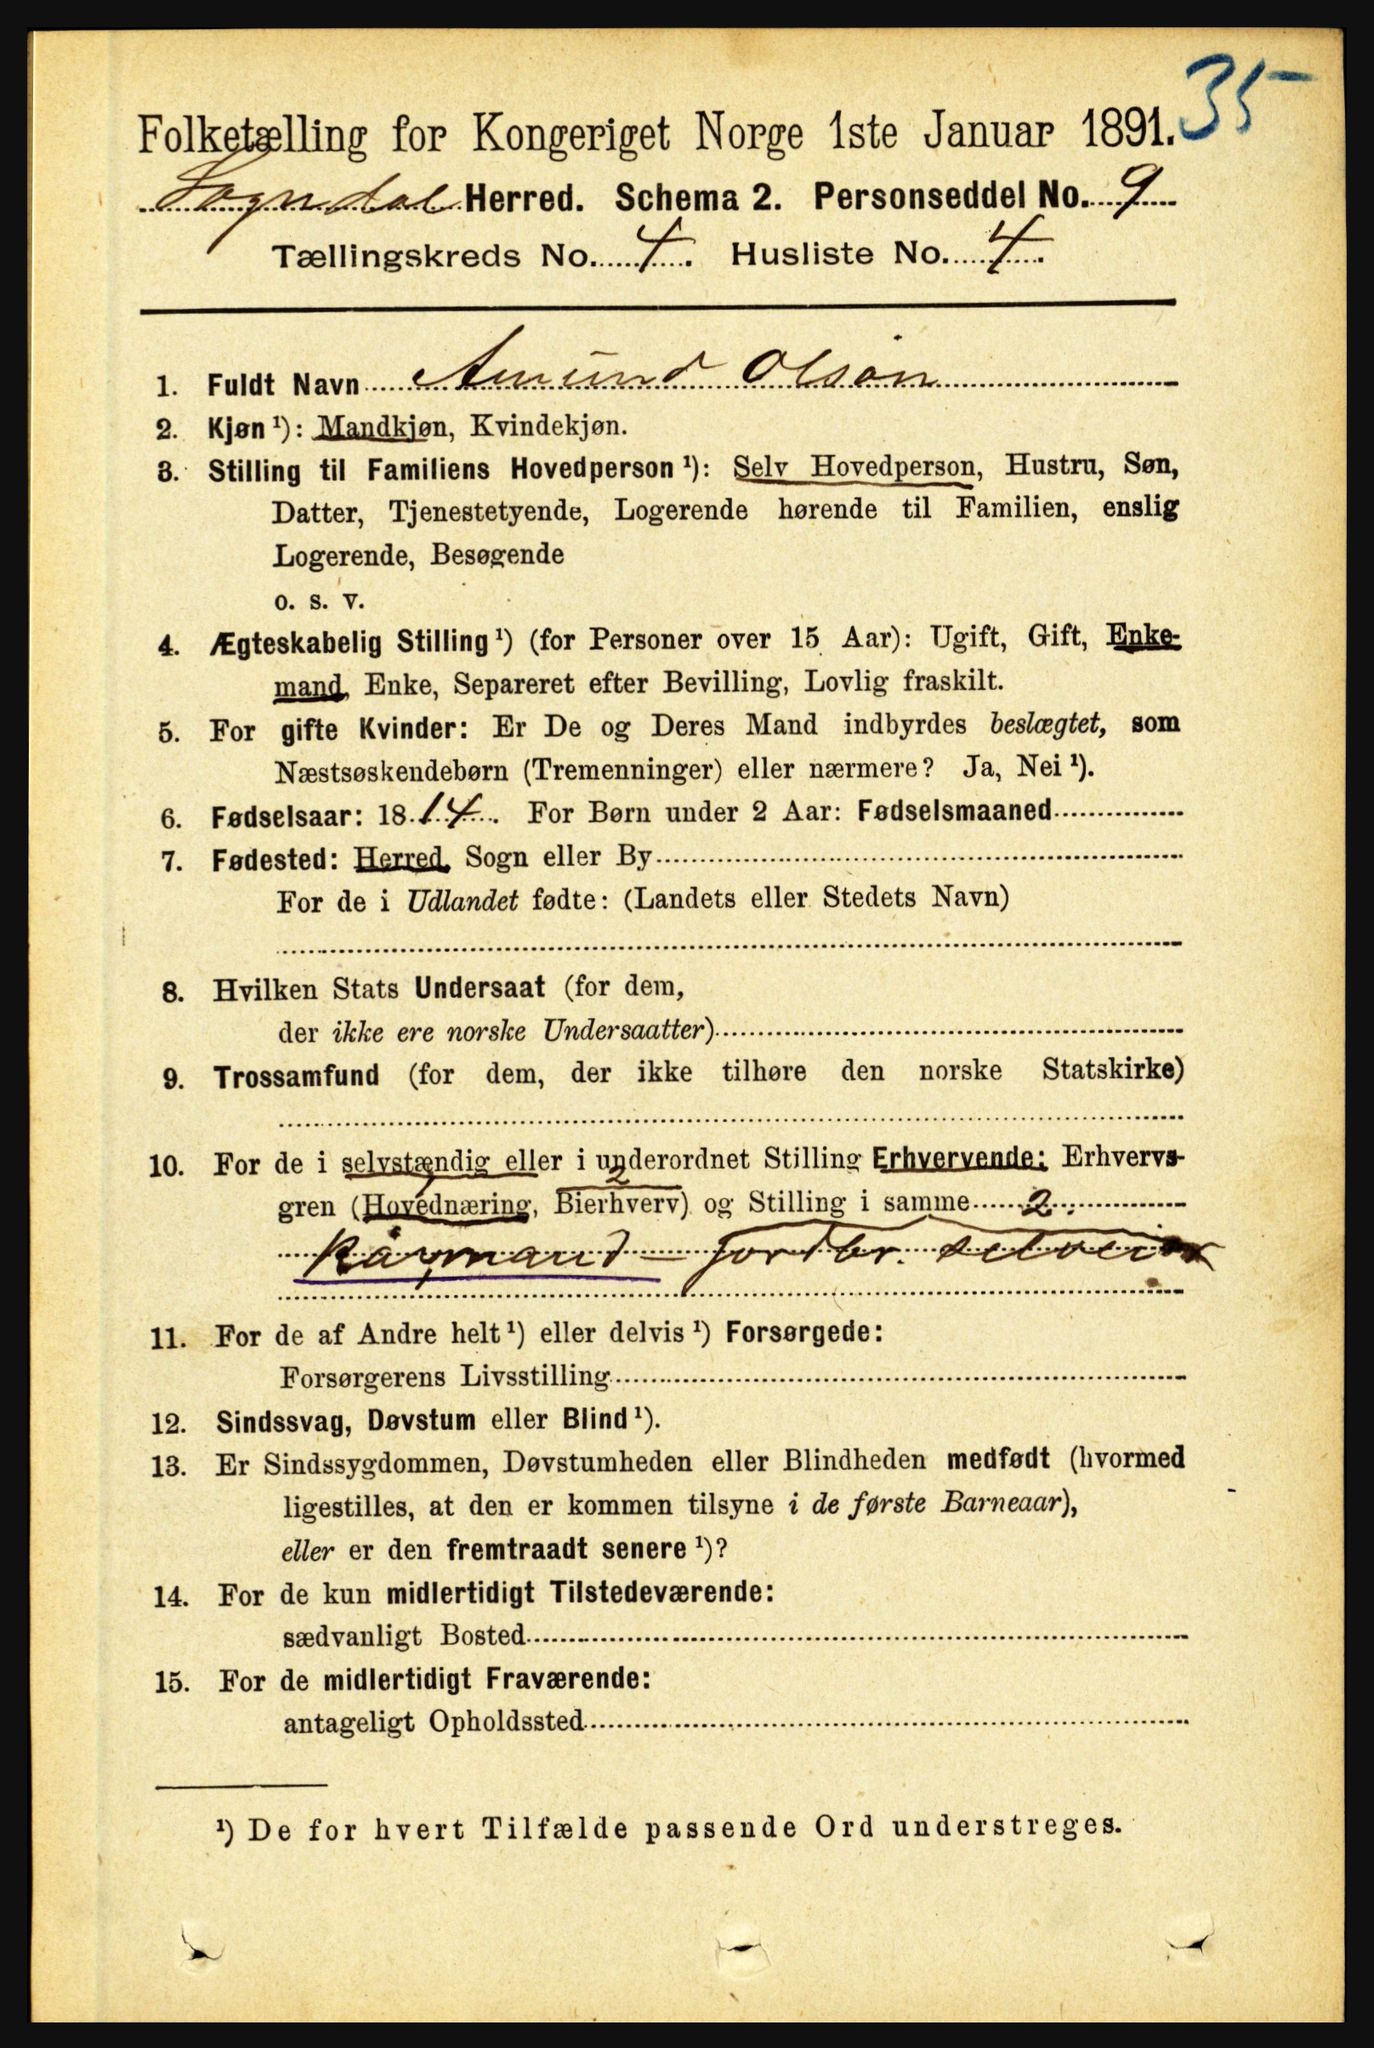 35
Folketælling for Kongeriget Norge 1ste Januar 1891.
Sogndal Herred. Schema 2. Personseddel No. 9
Tællingskreds No. 4. Husliste No. 4.
1. Fuldt Navn Amund Olson
2. Kjøn ¹): Mandkjøn, Kvindekjøn.
3. Stilling til Familiens Hovedperson ¹): Selv Hovedperson, Hustru, Søn,
Datter, Tjenestetyende, Logerende hørende til Familien, enslig
Logerende, Besøgende
o. s. v.
4. Ægteskabelig Stilling ¹) (for Personer over 15 Aar): Ugift, Gift, Enke-
mand, Enke, Separeret efter Bevilling, Lovlig fraskilt.
5. For gifte Kvinder: Er De og Deres Mand indbyrdes beslægtet, som
Næstsøskendebørn (Tremenninger) eller nærmere? Ja, Nei ¹).
6. Fødselsaar: 1814. For Børn under 2 Aar: Fødselsmaaned
7. Fødested: Herred, Sogn eller By
For de i Udlandet fødte: (Landets eller Stedets Navn)
8. Hvilken Stats Undersaat (for dem,
der ikke ere norske Undersaatter)
9. Trossamfund (for dem, der ikke tilhøre den norske Statskirke)
10. For de i selvstændig eller i underordnet Stilling Erhvervende: Erhvervs-
2
gren (Hovednæring, Bierhverv) og Stilling i samme 2.
Kårmand - Jordbr. selveier
11. For de af Andre helt ¹) eller delvis ¹) Forsørgede:
Forsørgerens Livsstilling
12. Sindssvag, Døvstum eller Blind ¹).
13. Er Sindssygdommen, Døvstumheden eller Blindheden medfødt (hvormed
ligestilles, at den er kommen tilsyne i de første Barneaar),
eller er den fremtraadt senere ¹)?
14. For de kun midlertidigt Tilstedeværende:
sædvanligt Bosted
15. For de midlertidigt Fraværende:
antageligt Opholdssted
¹) De for hvert Tilfælde passende Ord understreges.